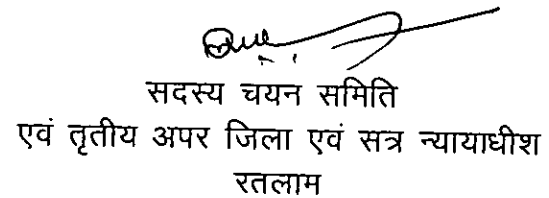 सदस्य चयन समिति
एवं तृतीय अपर जिला एवं सत्र न्यायाधीश
रतलाम